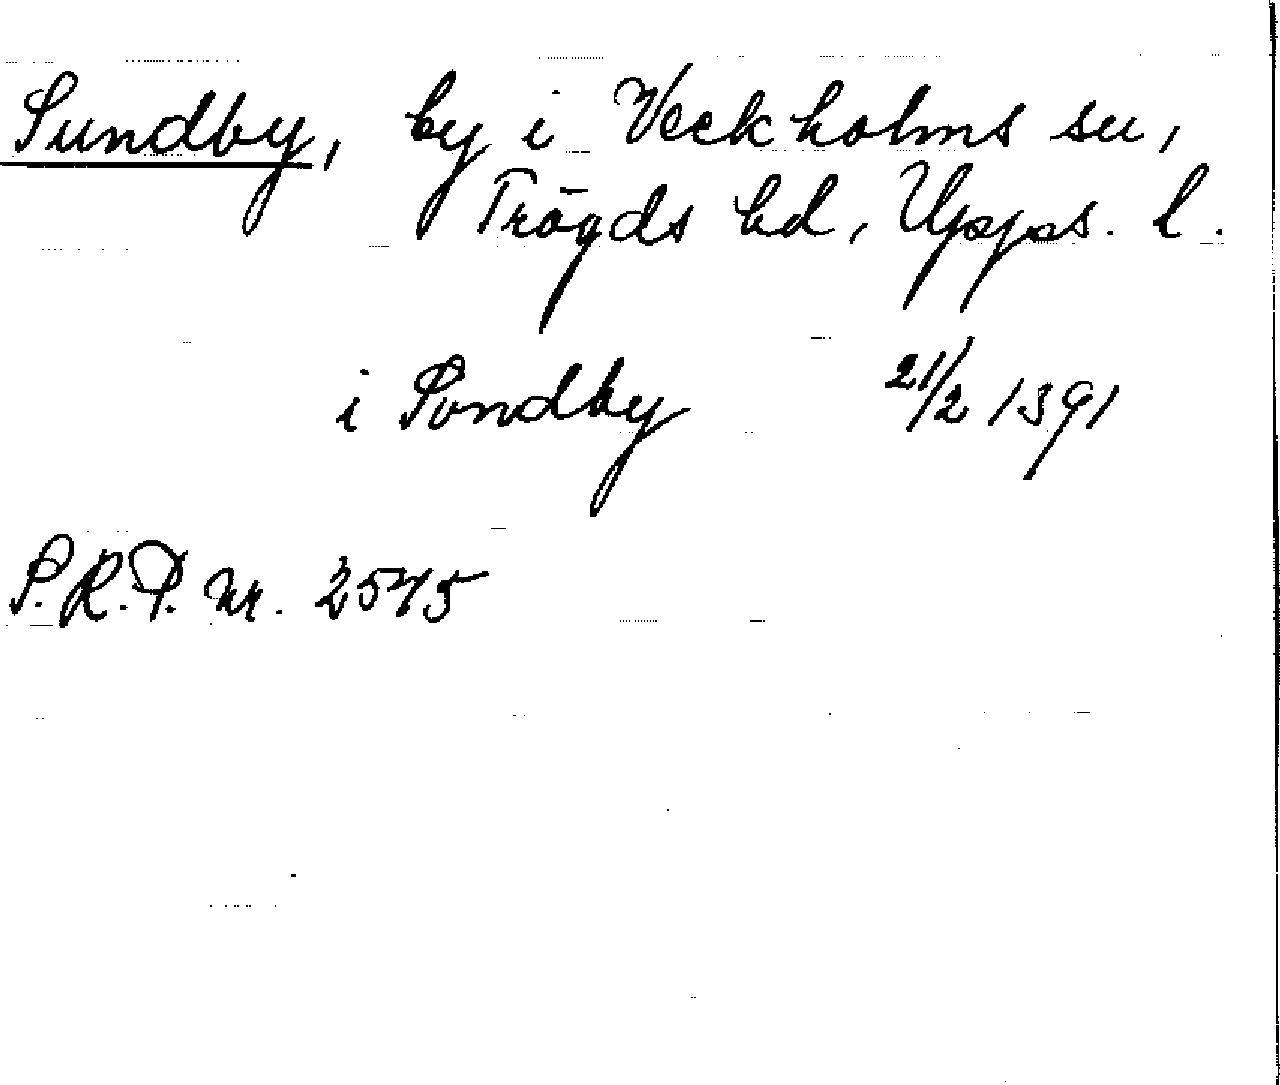 Sundby, by i Veckholms sn,
Trögds hd, Upps. l.
i Sundby 21/2 1391
S.R.P. nr. 2545